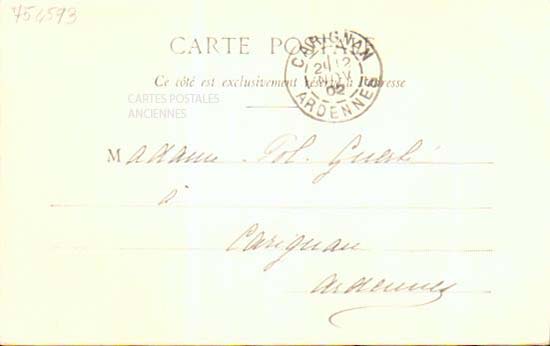 754593
CARTE POSTALE
Ce côté est exclusivement réservé à l'adresse
CARIGNAN
12
NOV
02
ARDENNES
CARTES POSTALES
ANCIENNES
Madame
à
Carignan
Ardennes